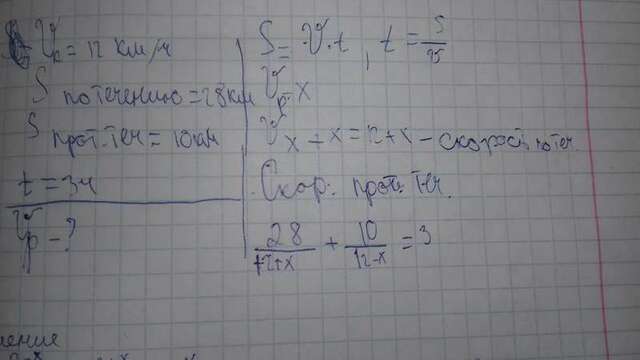 Vк = 12 км/ч
S по течению = 28 км
S прот. теч = 10 км
t = 3ч
Vр - ?
S = V · t, t =
Vр - x
Vx + x = 12 + x - скорость по теч.
Скор. прот. теч.
28/12+x + 10/12-x = 3